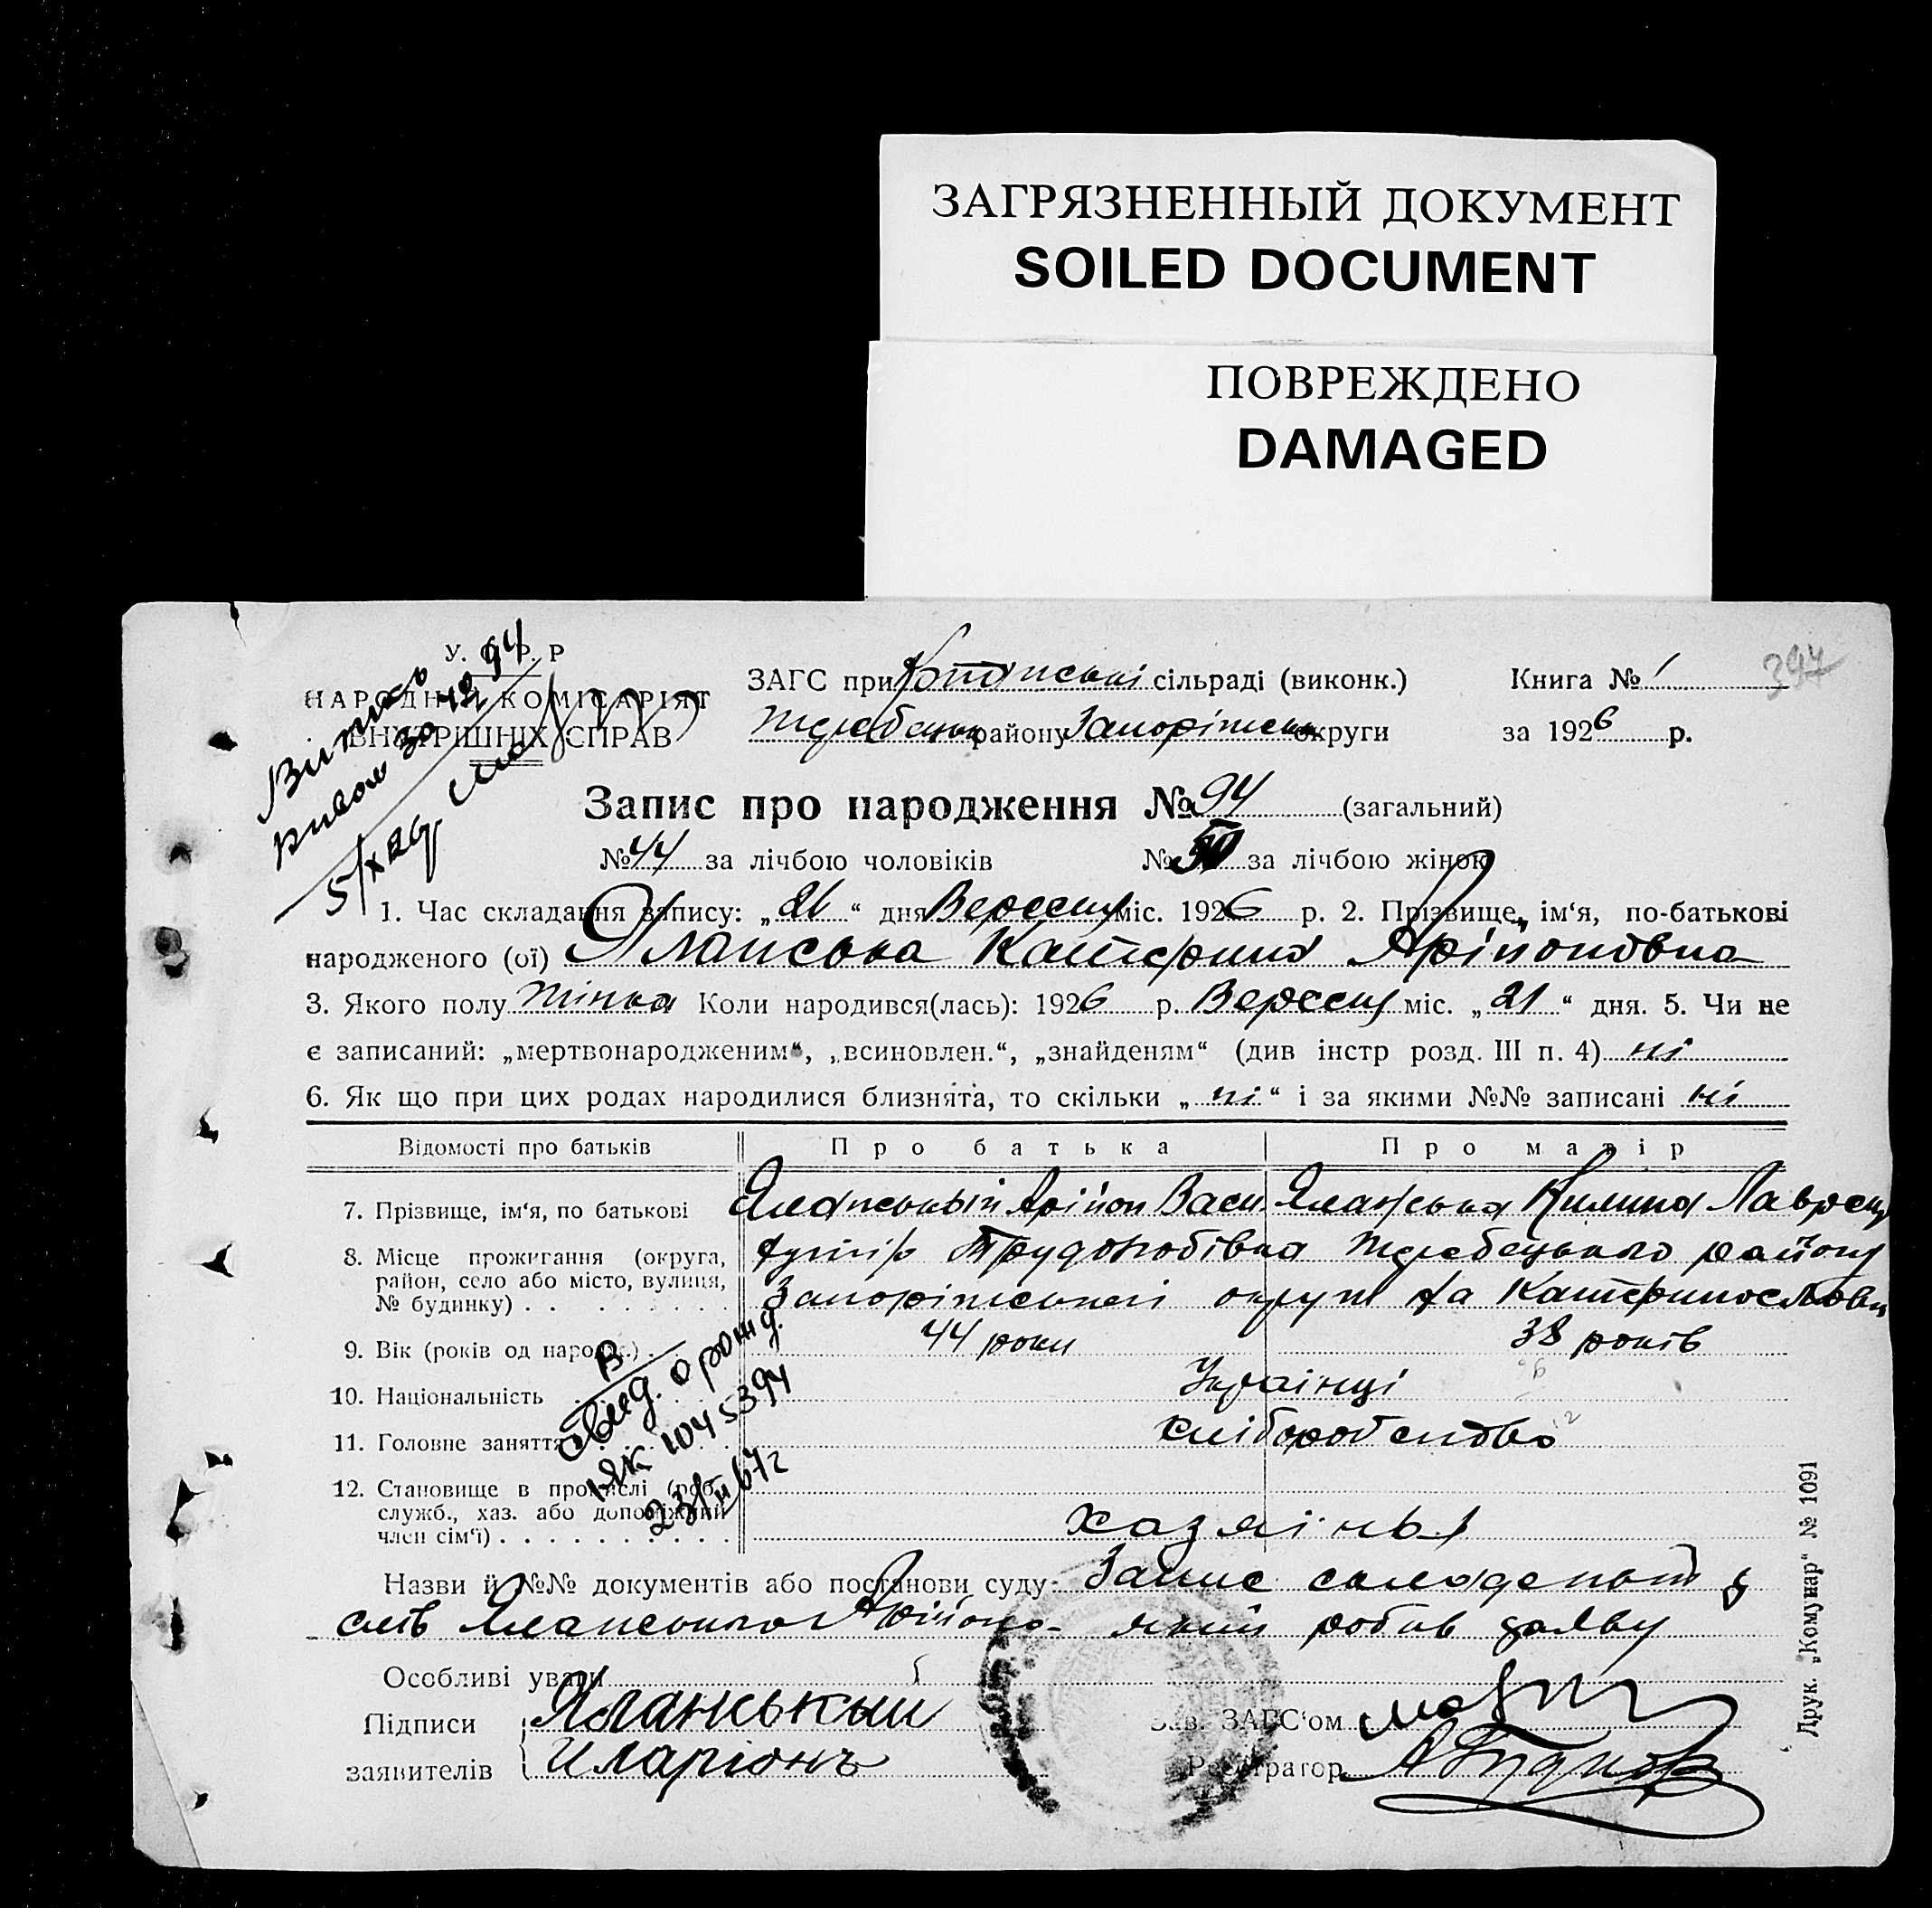 ЗАГРЯЗНЕННЫЙ ДОКУМЕНТ
SOILED DOCUMENT
ПОВРЕЖДЕНО
DAMAGED
У. С. Р. Р
НАРОДНІЙ КОМІСАРІЯТ
ВНУТРІШНІХ СПРАВ
ЗАГС при сільраді (виконк.)
Книга № 1
397
району Запоріжськ округи
за 1926 р.
Запис про народження № 94 (загальний)
№ 44 за лічбою чоловіків № 50 за лічбою жінок
1. Час складання запису: „21“ дня Вересня міс. 1926 р. 2. Прізвище, ім‘я, по-батькові
народженого (ої) Яланська Катерина Аріпоновна
3. Якого полу жінка Коли народився(лась): 1926 р. Вересня міс. „21“ дня. 5. Чи не
є записаний: „мертвонародженим“, „всиновлен.“, „знайденям“ (див інстр розд. III п. 4) ні
6. Як що при цих родах народилися близнята, то скільки „ні“ і за якими №№ записані ні
Відомості про батьків Про батька Про матір
7. Прізвище, ім‘я, по батькові Яланський Арійон Васи. Яланська Килина Лаврен
8. Місце прожигання (округа, хутір Трудолюбівка Жеребецького району
район, село або місто, вулиця,
№ будинку) . . Запоріжської округи на Катеринославщ
9. Вік (років од народж.) . 44 роки 38 років
10. Національність Українці
11. Головне заняття хліборобство
12. Становище в промислі (роб.,
служб., хаз. або допоміжний
член сім‘ї) . . . хазяіны
В
Свид. о рожд.
ІЯК 1045394
23/II 67г
Назви й №№ документів або постанови суду: Запис складений з
слів Яланського Арійона який робив заяву
Особливі уваги
Підписи Яланськый
заявителів Иларіонъ
Зав. ЗАГС‘ом
Реєстратор
Друк. „Комунар“ № 1091